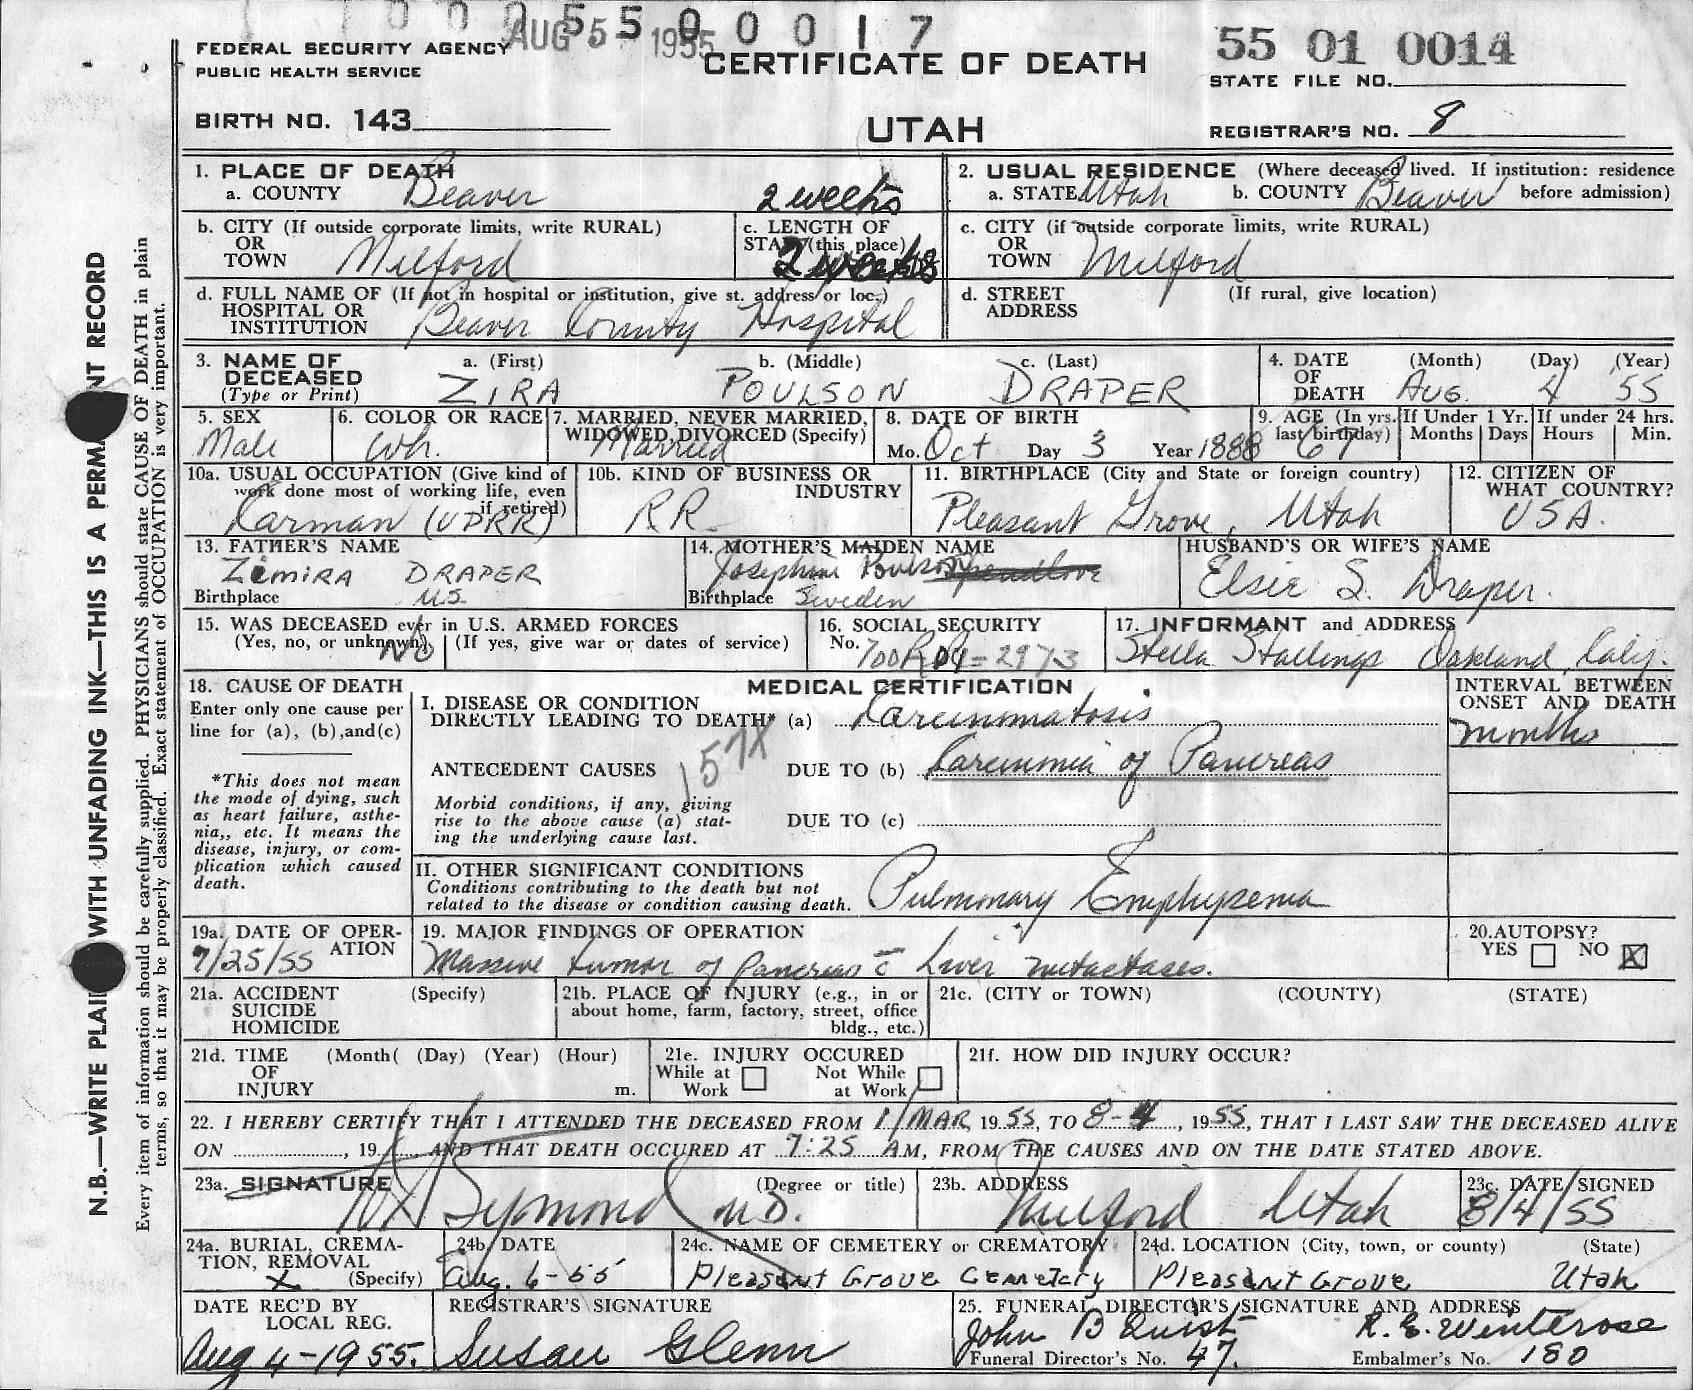 0 0 0 5 5 0 0 0 1 7
AUG 5 1955
FEDERAL SECURITY AGENCY
PUBLIC HEALTH SERVICE
CERTIFICATE OF DEATH
55 01 0014
STATE FILE NO.
BIRTH NO. 143
UTAH
REGISTRAR'S NO. 8
1. PLACE OF DEATH
a. COUNTY Beaver
2 weeks
2. USUAL RESIDENCE (Where deceased lived. If institution: residence
a. STATE Utah b. COUNTY Beaver before admission)
b. CITY (If outside corporate limits, write RURAL)
OR
TOWN Milford
c. LENGTH OF
STAY (this place)
2 weeks
c. CITY (if outside corporate limits, write RURAL)
OR
TOWN Milford
d. FULL NAME OF (If not in hospital or institution, give st. address or loc.)
HOSPITAL OR
INSTITUTION Beaver County Hospital
d. STREET (If rural, give location)
ADDRESS
3. NAME OF a. (First) b. (Middle) c. (Last)
DECEASED
(Type or Print) ZIRA POULSON DRAPER
4. DATE (Month) (Day) (Year)
OF
DEATH AUG. 4 55
5. SEX
Male
6. COLOR OR RACE
Wh.
7. MARRIED, NEVER MARRIED,
WIDOWED, DIVORCED (Specify)
Married
8. DATE OF BIRTH
Mo. Oct Day 3 Year 1888
9. AGE (In yrs.
last birthday)
67
If Under 1 Yr.
Months Days
If under 24 hrs.
Hours Min.
10a. USUAL OCCUPATION (Give kind of
work done most of working life, even
if retired)
Carman (UPRR)
10b. KIND OF BUSINESS OR
INDUSTRY
RR
11. BIRTHPLACE (City and State or foreign country)
Pleasant Grove, Utah
12. CITIZEN OF
WHAT COUNTRY?
USA.
13. FATHER'S NAME
ZEMIRA DRAPER
Birthplace U.S.
14. MOTHER'S MAIDEN NAME
Josephine Poulson
Birthplace Sweden
HUSBAND'S OR WIFE'S NAME
Elsie S. Draper.
15. WAS DECEASED ever in U.S. ARMED FORCES
(Yes, no, or unknown) (If yes, give war or dates of service)
No
16. SOCIAL SECURITY
No. 700 09-2973
17. INFORMANT and ADDRESS
Stella Stallings Oakland, Calif.
18. CAUSE OF DEATH
Enter only one cause per
line for (a), (b), and (c)
*This does not mean
the mode of dying, such
as heart failure, asthe-
nia,, etc. It means the
disease, injury, or com-
plication which caused
death.
MEDICAL CERTIFICATION
I. DISEASE OR CONDITION
DIRECTLY LEADING TO DEATH* (a) Carcinomatosis
157X
ANTECEDENT CAUSES DUE TO (b) Carcinomia of Pancreas
Morbid conditions, if any, giving
rise to the above cause (a) stat-
ing the underlying cause last.
DUE TO (c)
INTERVAL BETWEEN
ONSET AND DEATH
months
II. OTHER SIGNIFICANT CONDITIONS
Conditions contributing to the death but not
related to the disease or condition causing death.
Pulmonary Emphysema
19a. DATE OF OPER-
ATION
7/25/55
19. MAJOR FINDINGS OF OPERATION
Massive tumor of pancreas c̄ Liver metastases.
20. AUTOPSY?
YES NO X
21a. ACCIDENT (Specify)
SUICIDE
HOMICIDE
21b. PLACE OF INJURY (e.g., in or
about home, farm, factory, street, office
bldg., etc.)
21c. (CITY or TOWN) (COUNTY) (STATE)
21d. TIME (Month( (Day) (Year) (Hour)
OF
INJURY m.
21e. INJURY OCCURED
While at Not While
Work at Work
21f. HOW DID INJURY OCCUR?
22. I HEREBY CERTIFY THAT I ATTENDED THE DECEASED FROM 1 MAR 1955, TO 8-4, 1955, THAT I LAST SAW THE DECEASED ALIVE
ON , 19 AND THAT DEATH OCCURED AT 7:25 AM, FROM THE CAUSES AND ON THE DATE STATED ABOVE.
23a. SIGNATURE (Degree or title)
Symond M.D.
23b. ADDRESS
Milford Utah
23c. DATE SIGNED
8/4/55
24a. BURIAL, CREMA-
TION, REMOVAL
X (Specify)
24b. DATE
Aug. 6-55
24c. NAME OF CEMETERY or CREMATORY
Pleasant Grove Cemetery
24d. LOCATION (City, town, or county) (State)
Pleasant Grove Utah
DATE REC'D BY
LOCAL REG.
Aug 4-1955.
REGISTRAR'S SIGNATURE
Susan Glenn
25. FUNERAL DIRECTOR'S SIGNATURE AND ADDRESS
John B Quist R.E. Winterose
Funeral Director's No. 47. Embalmer's No. 180
N.B.—WRITE PLAINLY WITH UNFADING INK—THIS IS A PERMANENT RECORD
Every item of information should be carefully supplied. PHYSICIANS should state CAUSE OF DEATH in plain
terms, so that it may be properly classified. Exact statement of OCCUPATION is very important.